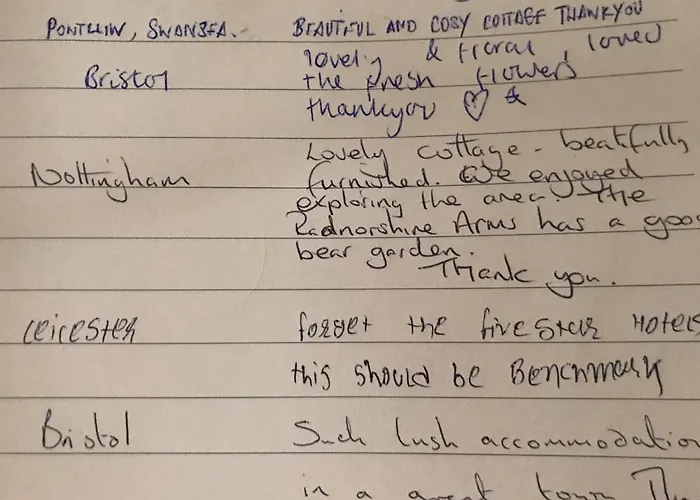 PONTLLIW, SWANSEA. - BEAUTIFUL AND COSY COTTAGE THANKYOU
lovely & floral, loved
Bristol the fresh flowers
thankyou ♡ &
Lovely cottage - beatifully
Nottingham furnished. We enjoyed
exploring the area. The
Radnorshire Arms has a good
bear garden.
Thank you.
Leicester forget the five star Hotels
this should be Benchmark
Bristol Such lush accommodation
in a great town. Th